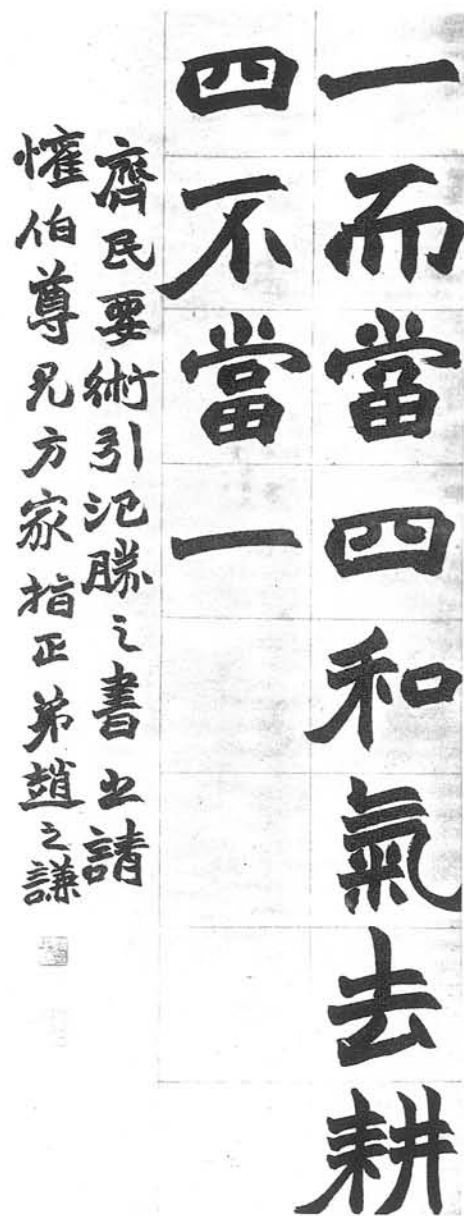 一而當四和氣去耕
四不當一
齊民要術引氾勝之書出請
懽伯尊兄方家指正弟趙之謙